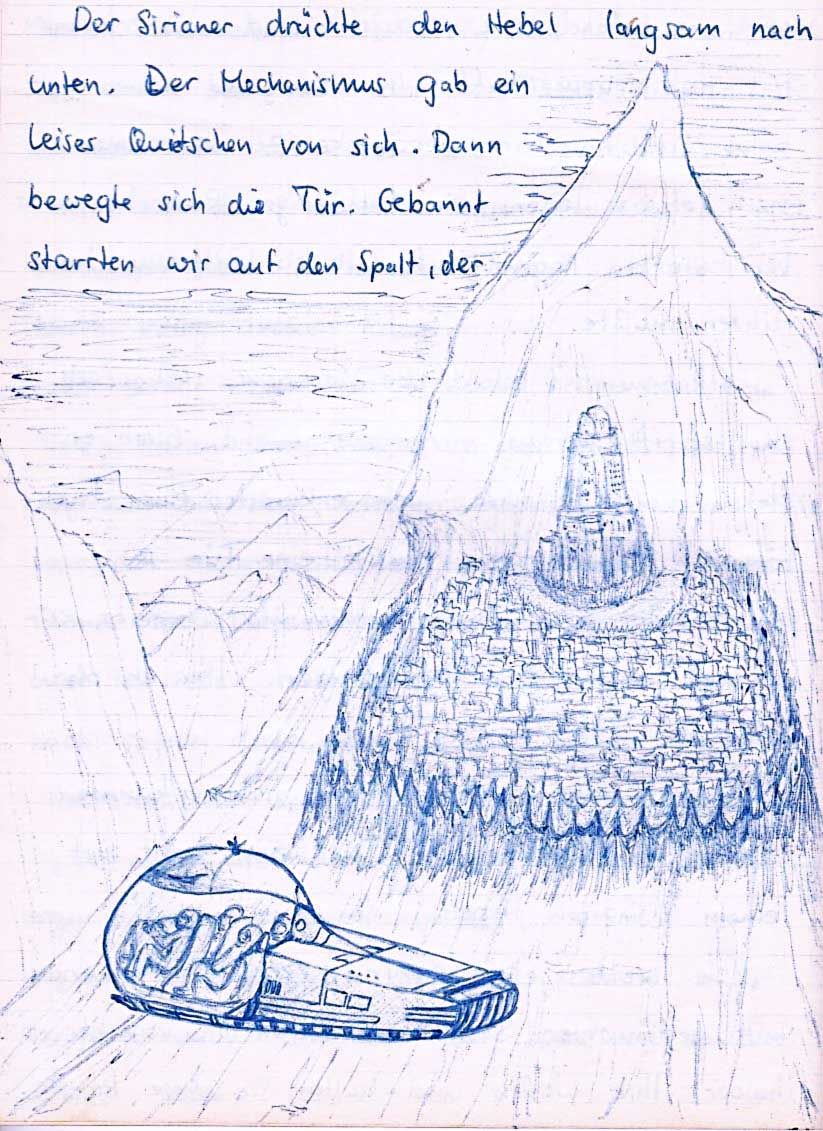 Der Sirianer drückte den Hebel langsam nach
unten. Der Mechanismus gab ein
leises Quietschen von sich. Dann
bewegte sich die Tür. Gebannt
starrten wir auf den Spalt, der